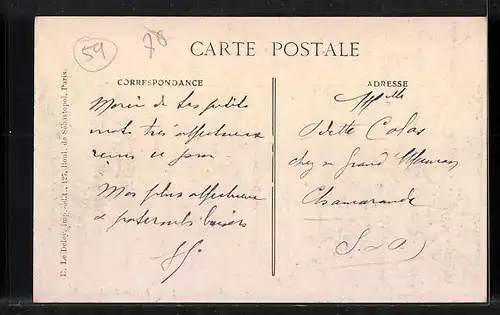 59
78
CARTE POSTALE
CORRESPONDANCE
ADRESSE
Merci de tes petits
mots très affectueux
reçus ce jour.
Mes plus affectueux
& fraternels baisers
Mlle
Odette Colas
chez sa Grand' Maman
Chamarande
S. & O.
E. Le Deley, imp.-édit., 127, Boul. de Sébastopol, Paris.